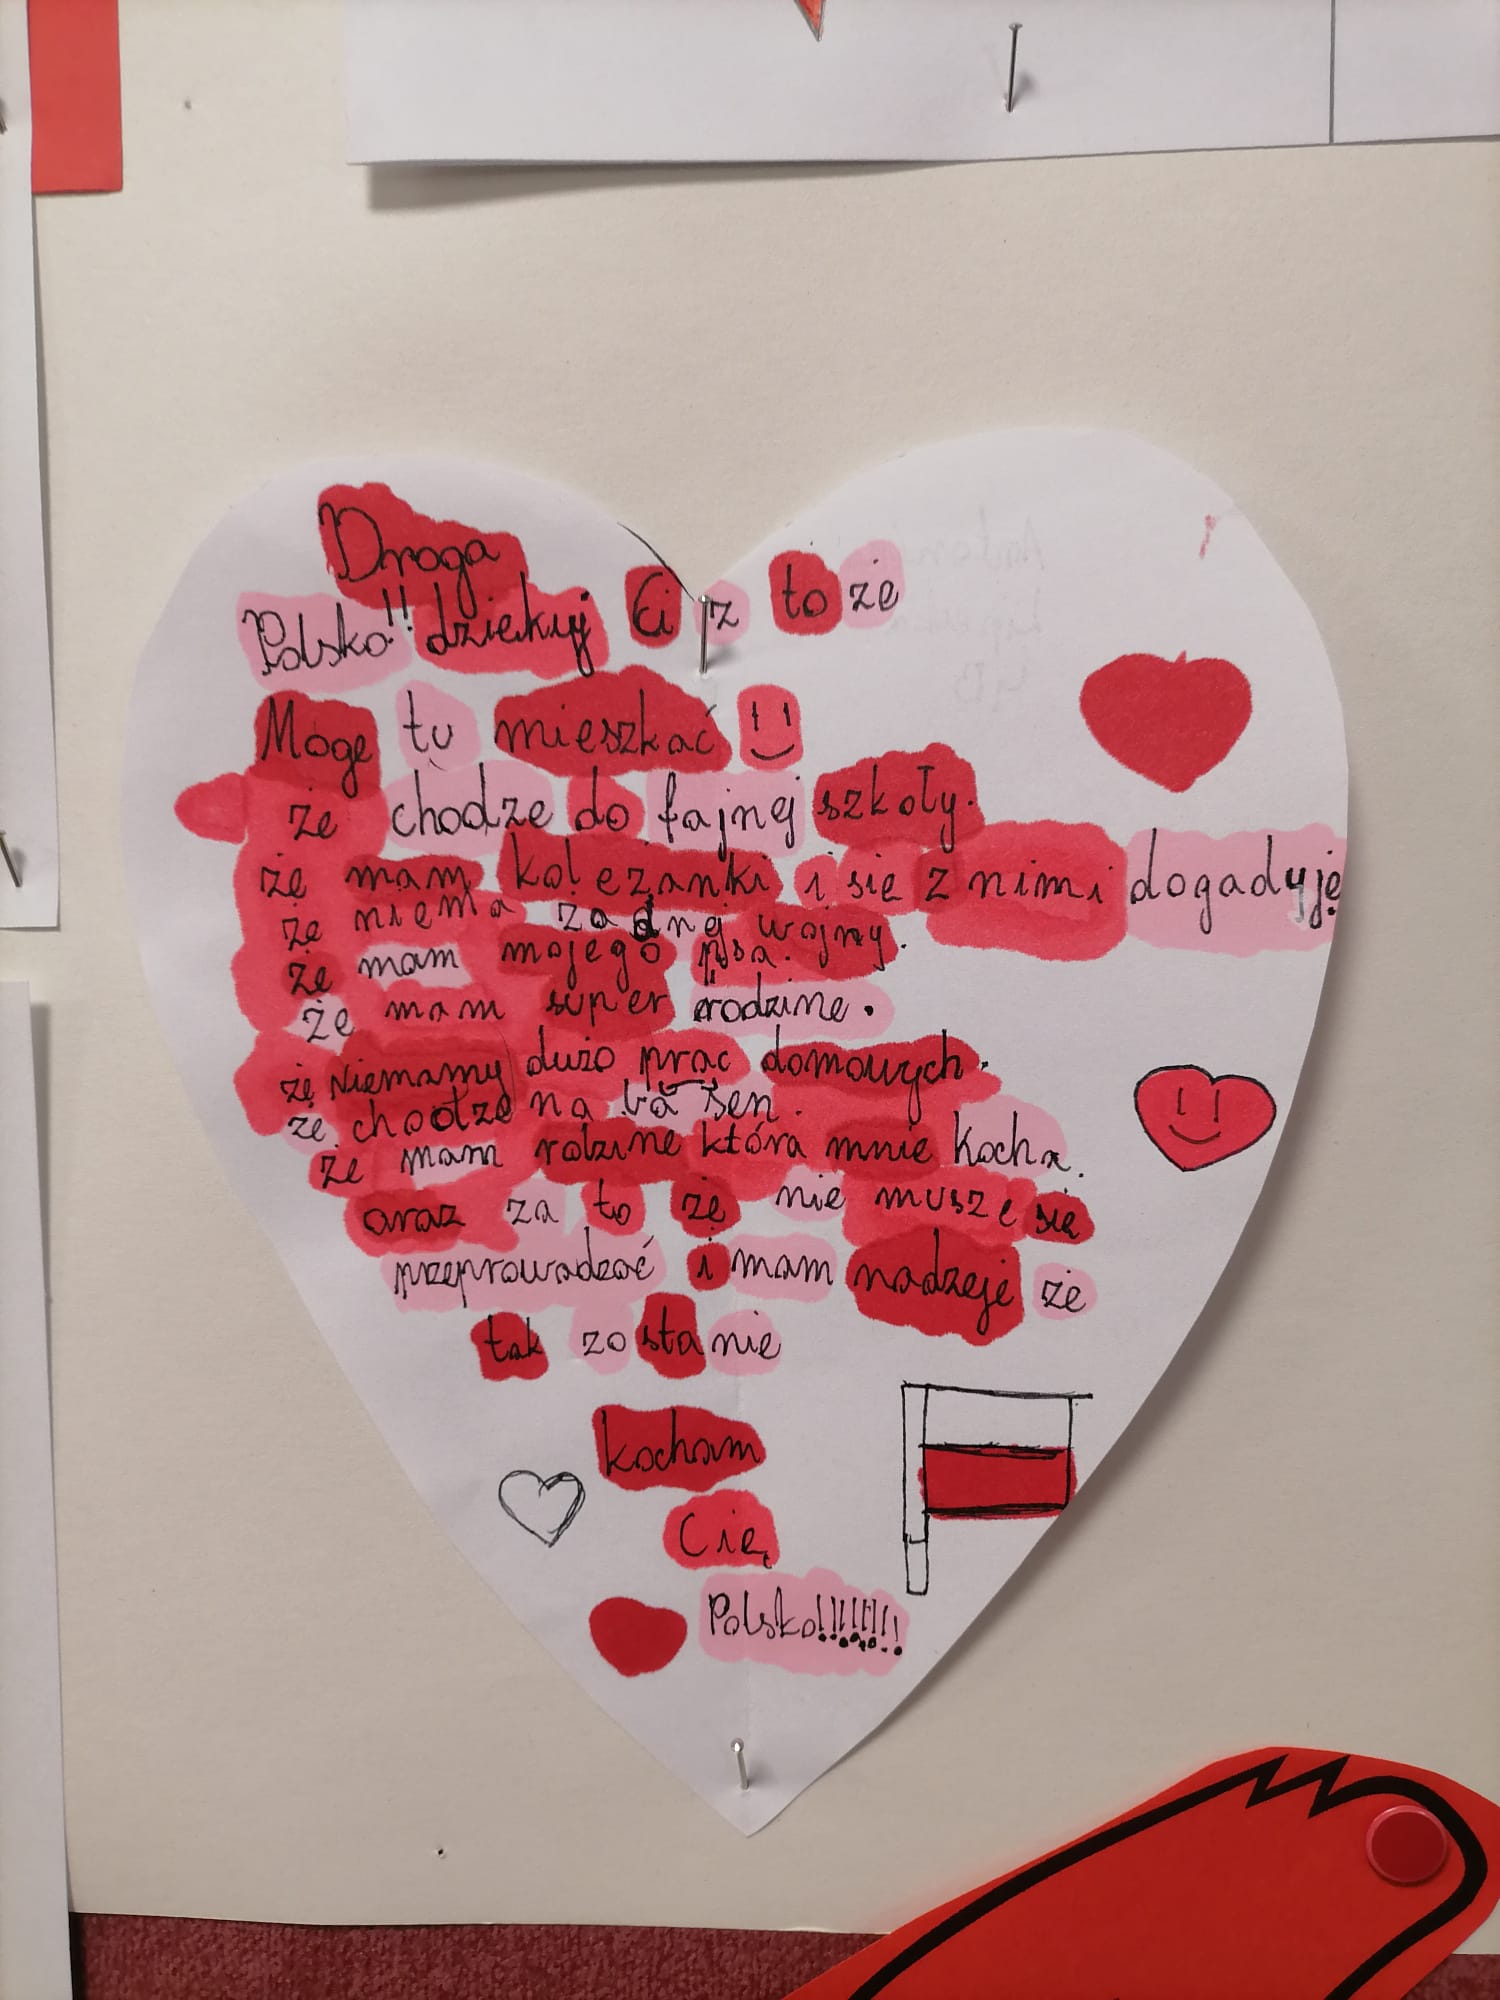 Droga
Polsko!! dziękuj Ci z to że
Mogę tu mieszkać
że chodze do fajnej szkoły.
że mam koleżanki i się z nimi dogaduję
że niema żadnej wojny.
że mam mojego psa.
że mam super rodzine.
że Niemamy dużo prac domowych.
że chodze na basen.
że mam rodzine która mnie kocha.
oraz za to że nie musze się
przeprowadzać i mam nadzeję że
tak zostanie
kocham
Cię
Polsko!!!!!!!!